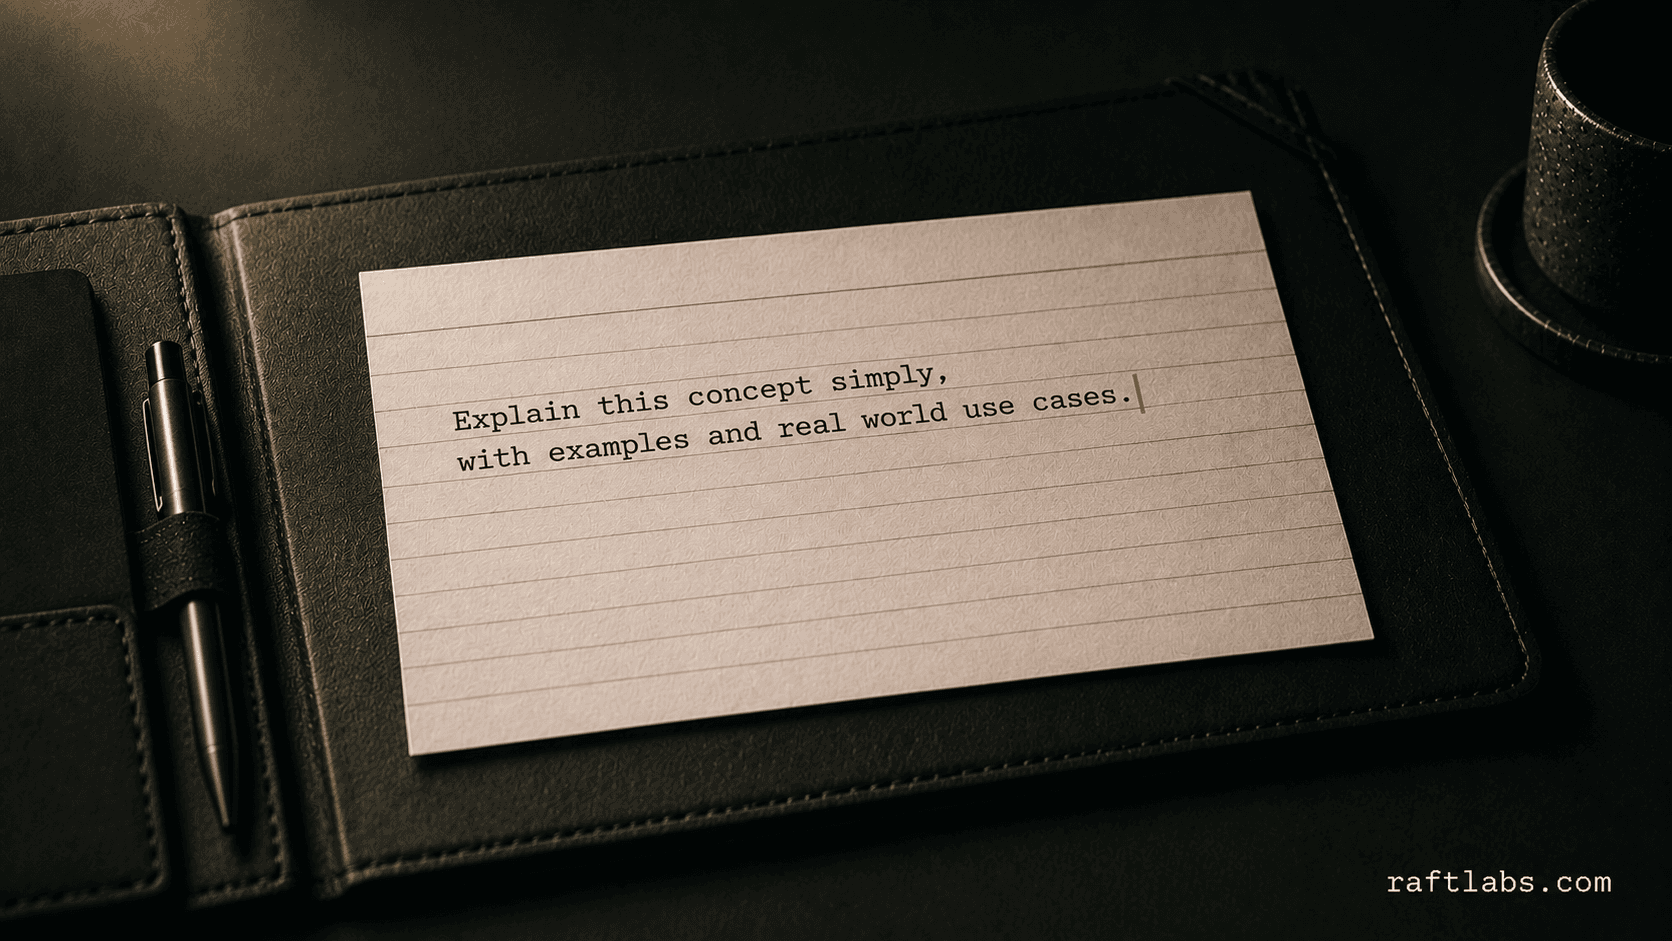 Explain this concept simply,
with examples and real world use cases.
raftlabs.com